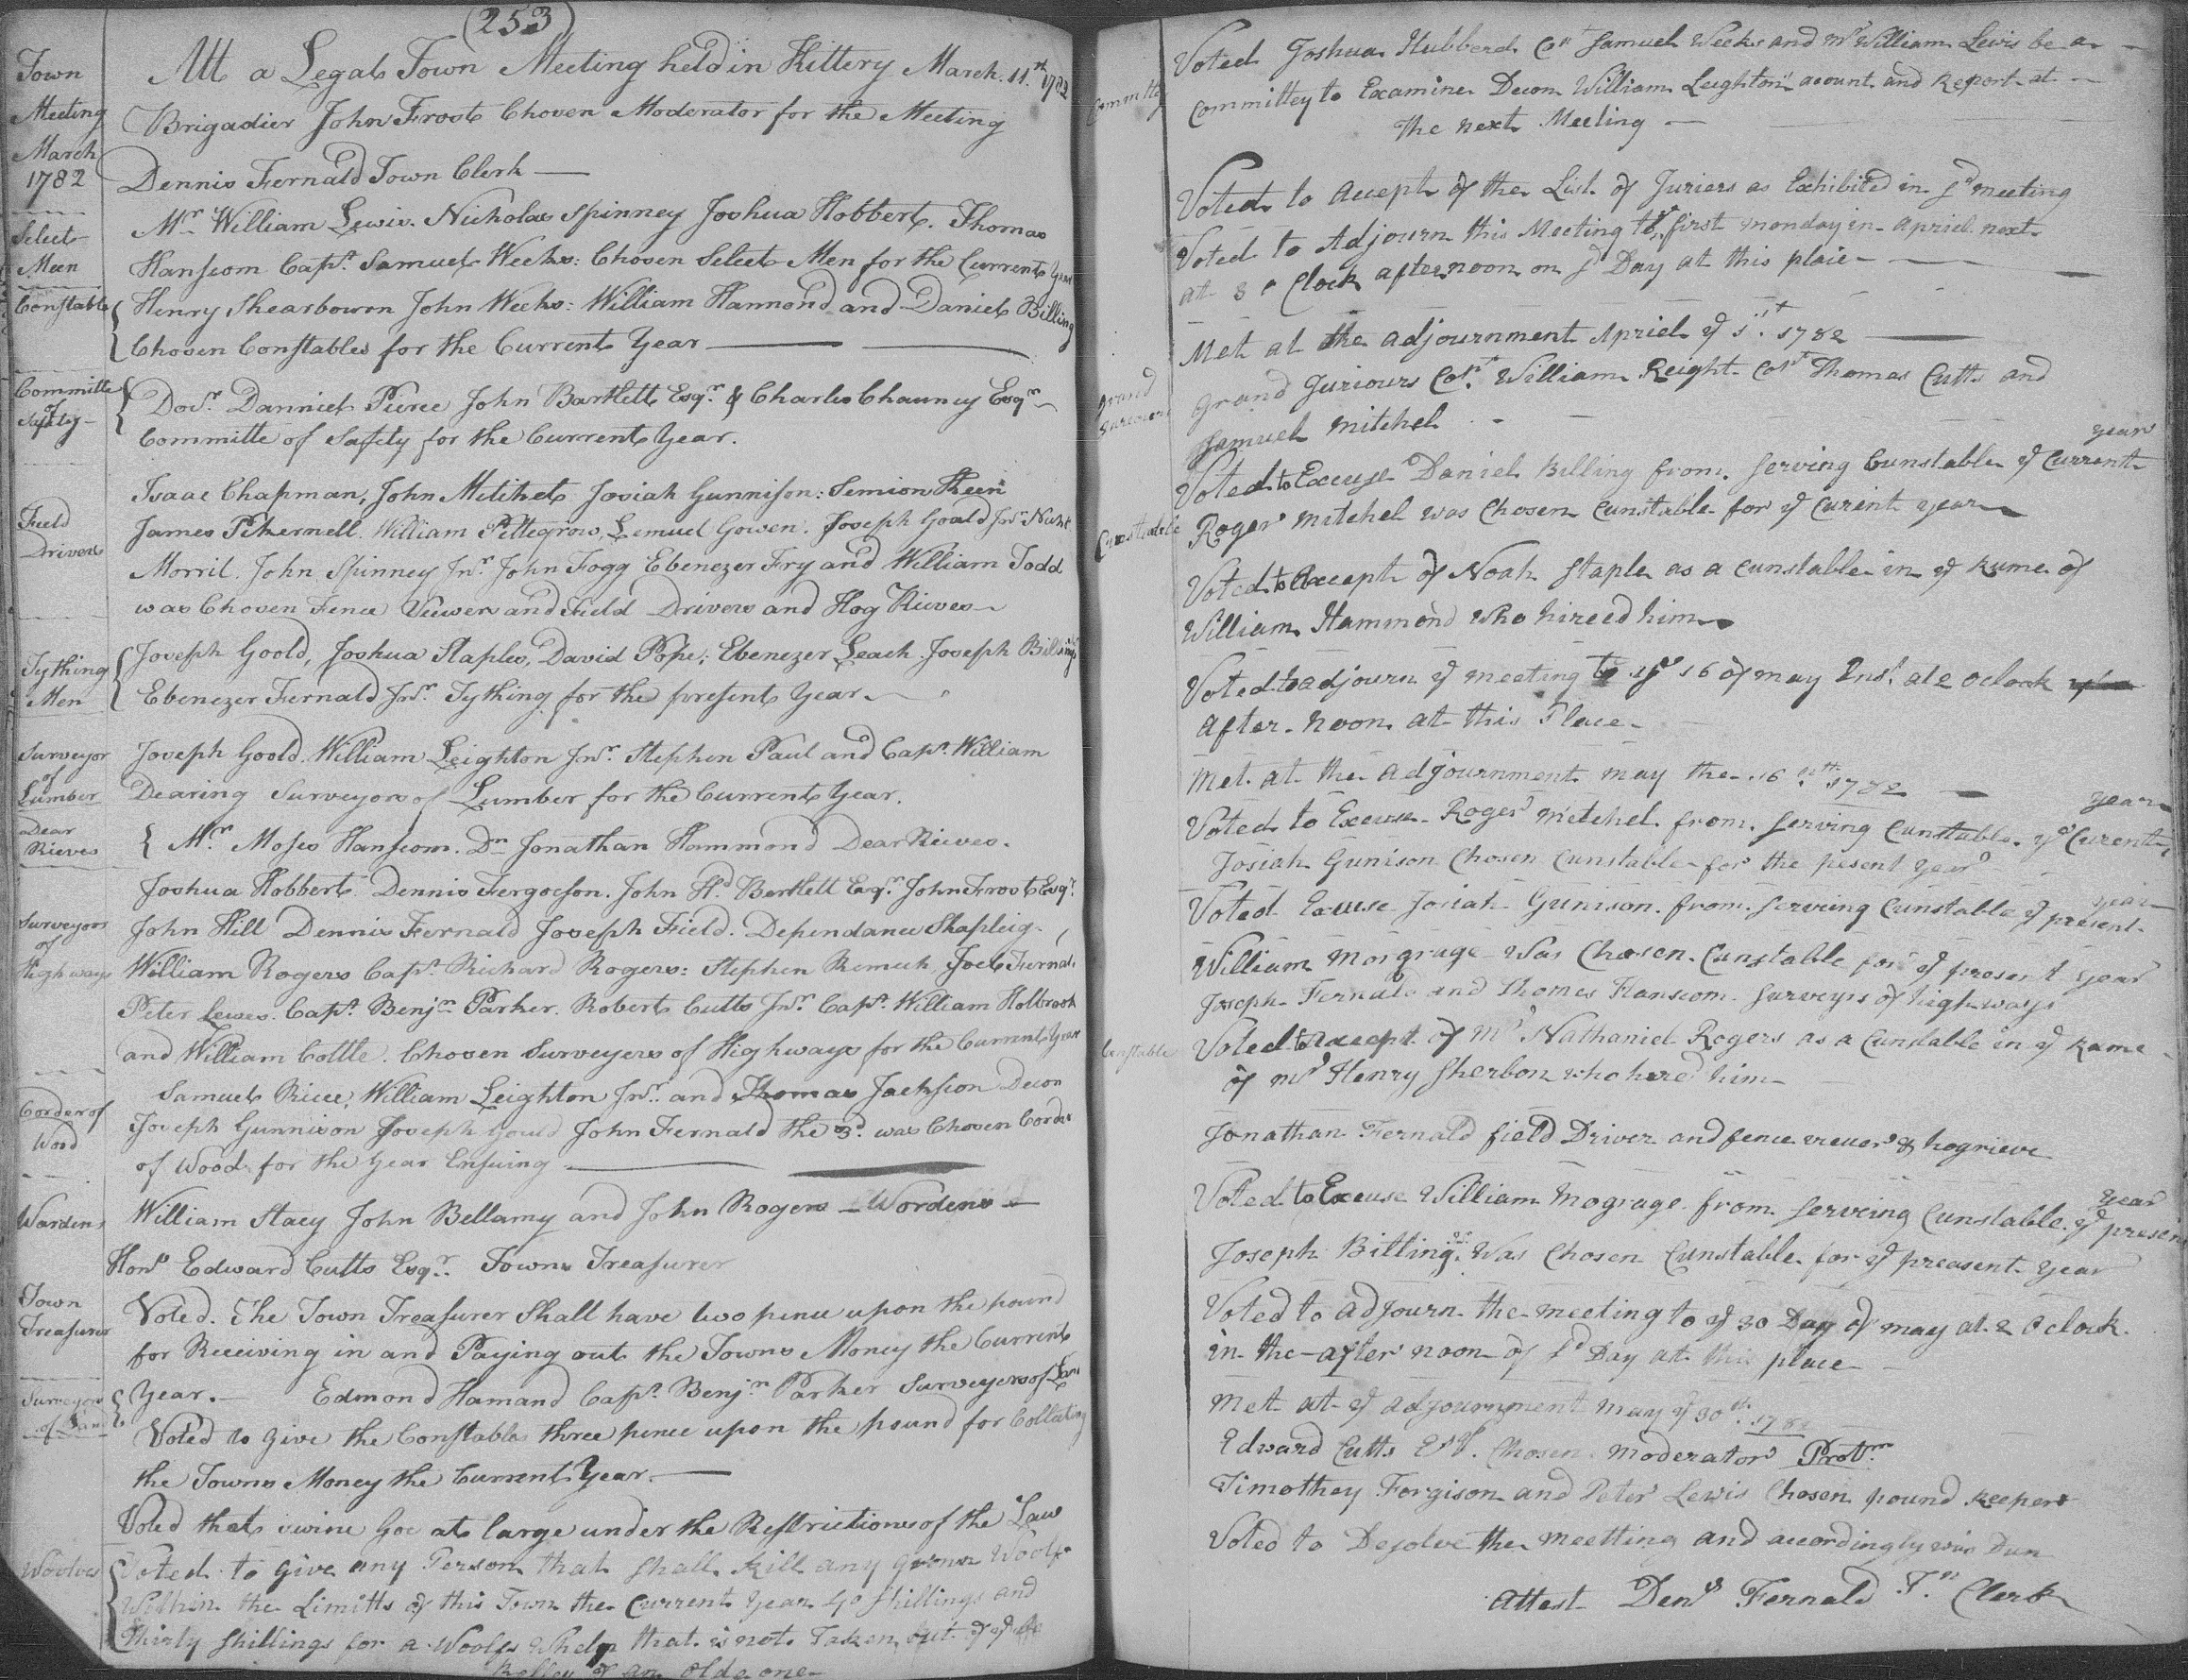 (253)
Town
Meeting
March
1782
Att a Legal Town Meeting held in Kittery March 11.th 1782
Brigadier John Frost Chosen Moderator for the Meeting
Dennis Fernald Town Clerk —
Select
Meen
Mr William Lewis. Nicholas Spinney Joshua Hobbert. Thomas
Hanscom Capt. Samuel Weeks: Chosen Select Men for the Current Year
Constable
Henry Shearbourn John Weeks: William Hammond and Daniel Billing
Chosen Constables for the Current Year
Committe
of
Safety
Docr. Danniel Pierce John Bartlett Esqr. & Charles Chauncy Esqr
Committe of Safety for the Current Year.
Field
Drivers
Isaac Chapman, John Mitchel Josiah Gunnison: Simion Keen
James Pikernell. William Pettegrow, Lemuel Gowen. Joseph Goold Jnr Nichs
Morril. John Spinney Jnr. John Fogg Ebenezer Fry and William Todd
was Chosen Fence Viewers and Field Drivers and Hog Rieves
Tything
Men
Joseph Goold, Joshua Staples, David Pope, Ebenezer Leach. Joseph Billings
Ebenezer Fernald Jnr. Tything for the present Year
Surveyor
of
Lumber
Joseph Goold. William Leighton Jnr. Stephen Paul and Capt. William
Dearing Surveyors of Lumber for the Current Year.
Dear
Rieves
Mr. Moses Hanscom. Dn Jonathan Hammond Dear Rieves.
Surveyors
of
High ways
Joshua Hobbert. Dennis Fergoeson. John Hd Bartlett Esqr. John Frost Esqr.
John Hill Dennis Fernald Joseph Field. Dependance Shapleig
William Rogers Capt. Richard Rogers: Stephen Remick Joel Fernald
Peter Lewes. Capt. Benjn Parker. Robert Cutts Jnr. Capt. William Holbrook
and William Cottle. Chosen Surveyers of Highways for the Current Year
Corder of
Wood
Samuel Rice, William Leighton Jnr. and Thomas Jackson Decon
Joseph Gunnison Joseph Gould John Fernald the 3d. was Chosen Corder
of Wood for the Year Ensuing
Wardens
William Stacy John Bellamy and John Rogers — Wordens —
Honr Edward Cutts Esqr. Town Treasurer
Town
Treasurer
Voted. The Town Treasurer Shall have two pence upon the pound
for Receiving in and Paying out the Towns Money the Current
Surveyors
of Land
Year. Edmond Hamand Capt. Benjn Parker Surveyers of Lan
Voted to give the Constables three pence upon the pound for Collecting
the Towns Money the Current Year.
Voted that swine Goe at large under the Restrictions of the Law
Woolves
Voted to Give any Person that Shall Kill any grown Woolf
Within the Limitts of this Town the Current Year 40 Shillings and
thirty Shillings for a Woolfs Whelp that is not Taken out of ye
Belley of an olde one
Committey
Voted Joshua Hubberd Capt Samuel Weeks and Mr William Lewis be a
Committey to Examine Decon William Leighton acount and Report at
the next Meeting —
Voted to Accept of the List of Juriers as Exhibited in sd meeting
Voted to Adjourn this Meeting to ye first monday in Apriel next
at 3 o Clock afternoon on sd Day at this plaie
Met at the adjournment Apriel ye 1st 1782
Grand
Juriours
Grand Juriours Capt. William Reight Capt Thomas Cutts and
Samuel Mitchel
year
Voted to Excuse Daniel Billing from Serving Cunstable ye Current
Cunstable
Roger Mitchel was Chosen Cunstable for ye Curent year
Voted to Accept of Noah Staple as a Cunstable in ye Rume of
William Hammond Who hireed him
Voted to adjourn ye meeting to ye 16 of may Inst. at 2 oclock
after noon at this Place
Met at the Adjournment may the 16th 1782
year
Voted to Excuse Roger Mitchel from Serving Cunstable ye Curent
Josiah Gunison Chosen Cunstable for the pesent year
year
Voted Excuse Josiah Gunison from Serveing Cunstable ye present
William Morgrage Was Chosen Cunstable for ye present year
Joseph Fernald and Thomas Hanscom Surveyrs of high ways
Cunstable
Voted to Accept of Mr Nathaniel Rogers as a Cunstable in ye Rame
of Mr Henry Sherbon who hired him
Jonathan Fernald field Driver and fence viewer & hogrieve
year
Voted to Excuse William Mograge from Serveing Cunstable ye present
Joseph Billings Was Chosen Cunstable for ye preasent year
Voted to adjourn the meeting to ye 30 Day of may at 2 oclock
in the after noon of sd Day at this place
Met at ye adjournment may ye 30th 1782
Edward Cutts Esq. Chosen moderator Protm
Timothey Forgison and Peter Lewis Chosen pound keepers
Voted to Desolve the meetting and accordingly was Dun
Attest Dens Fernald Tn Clerk